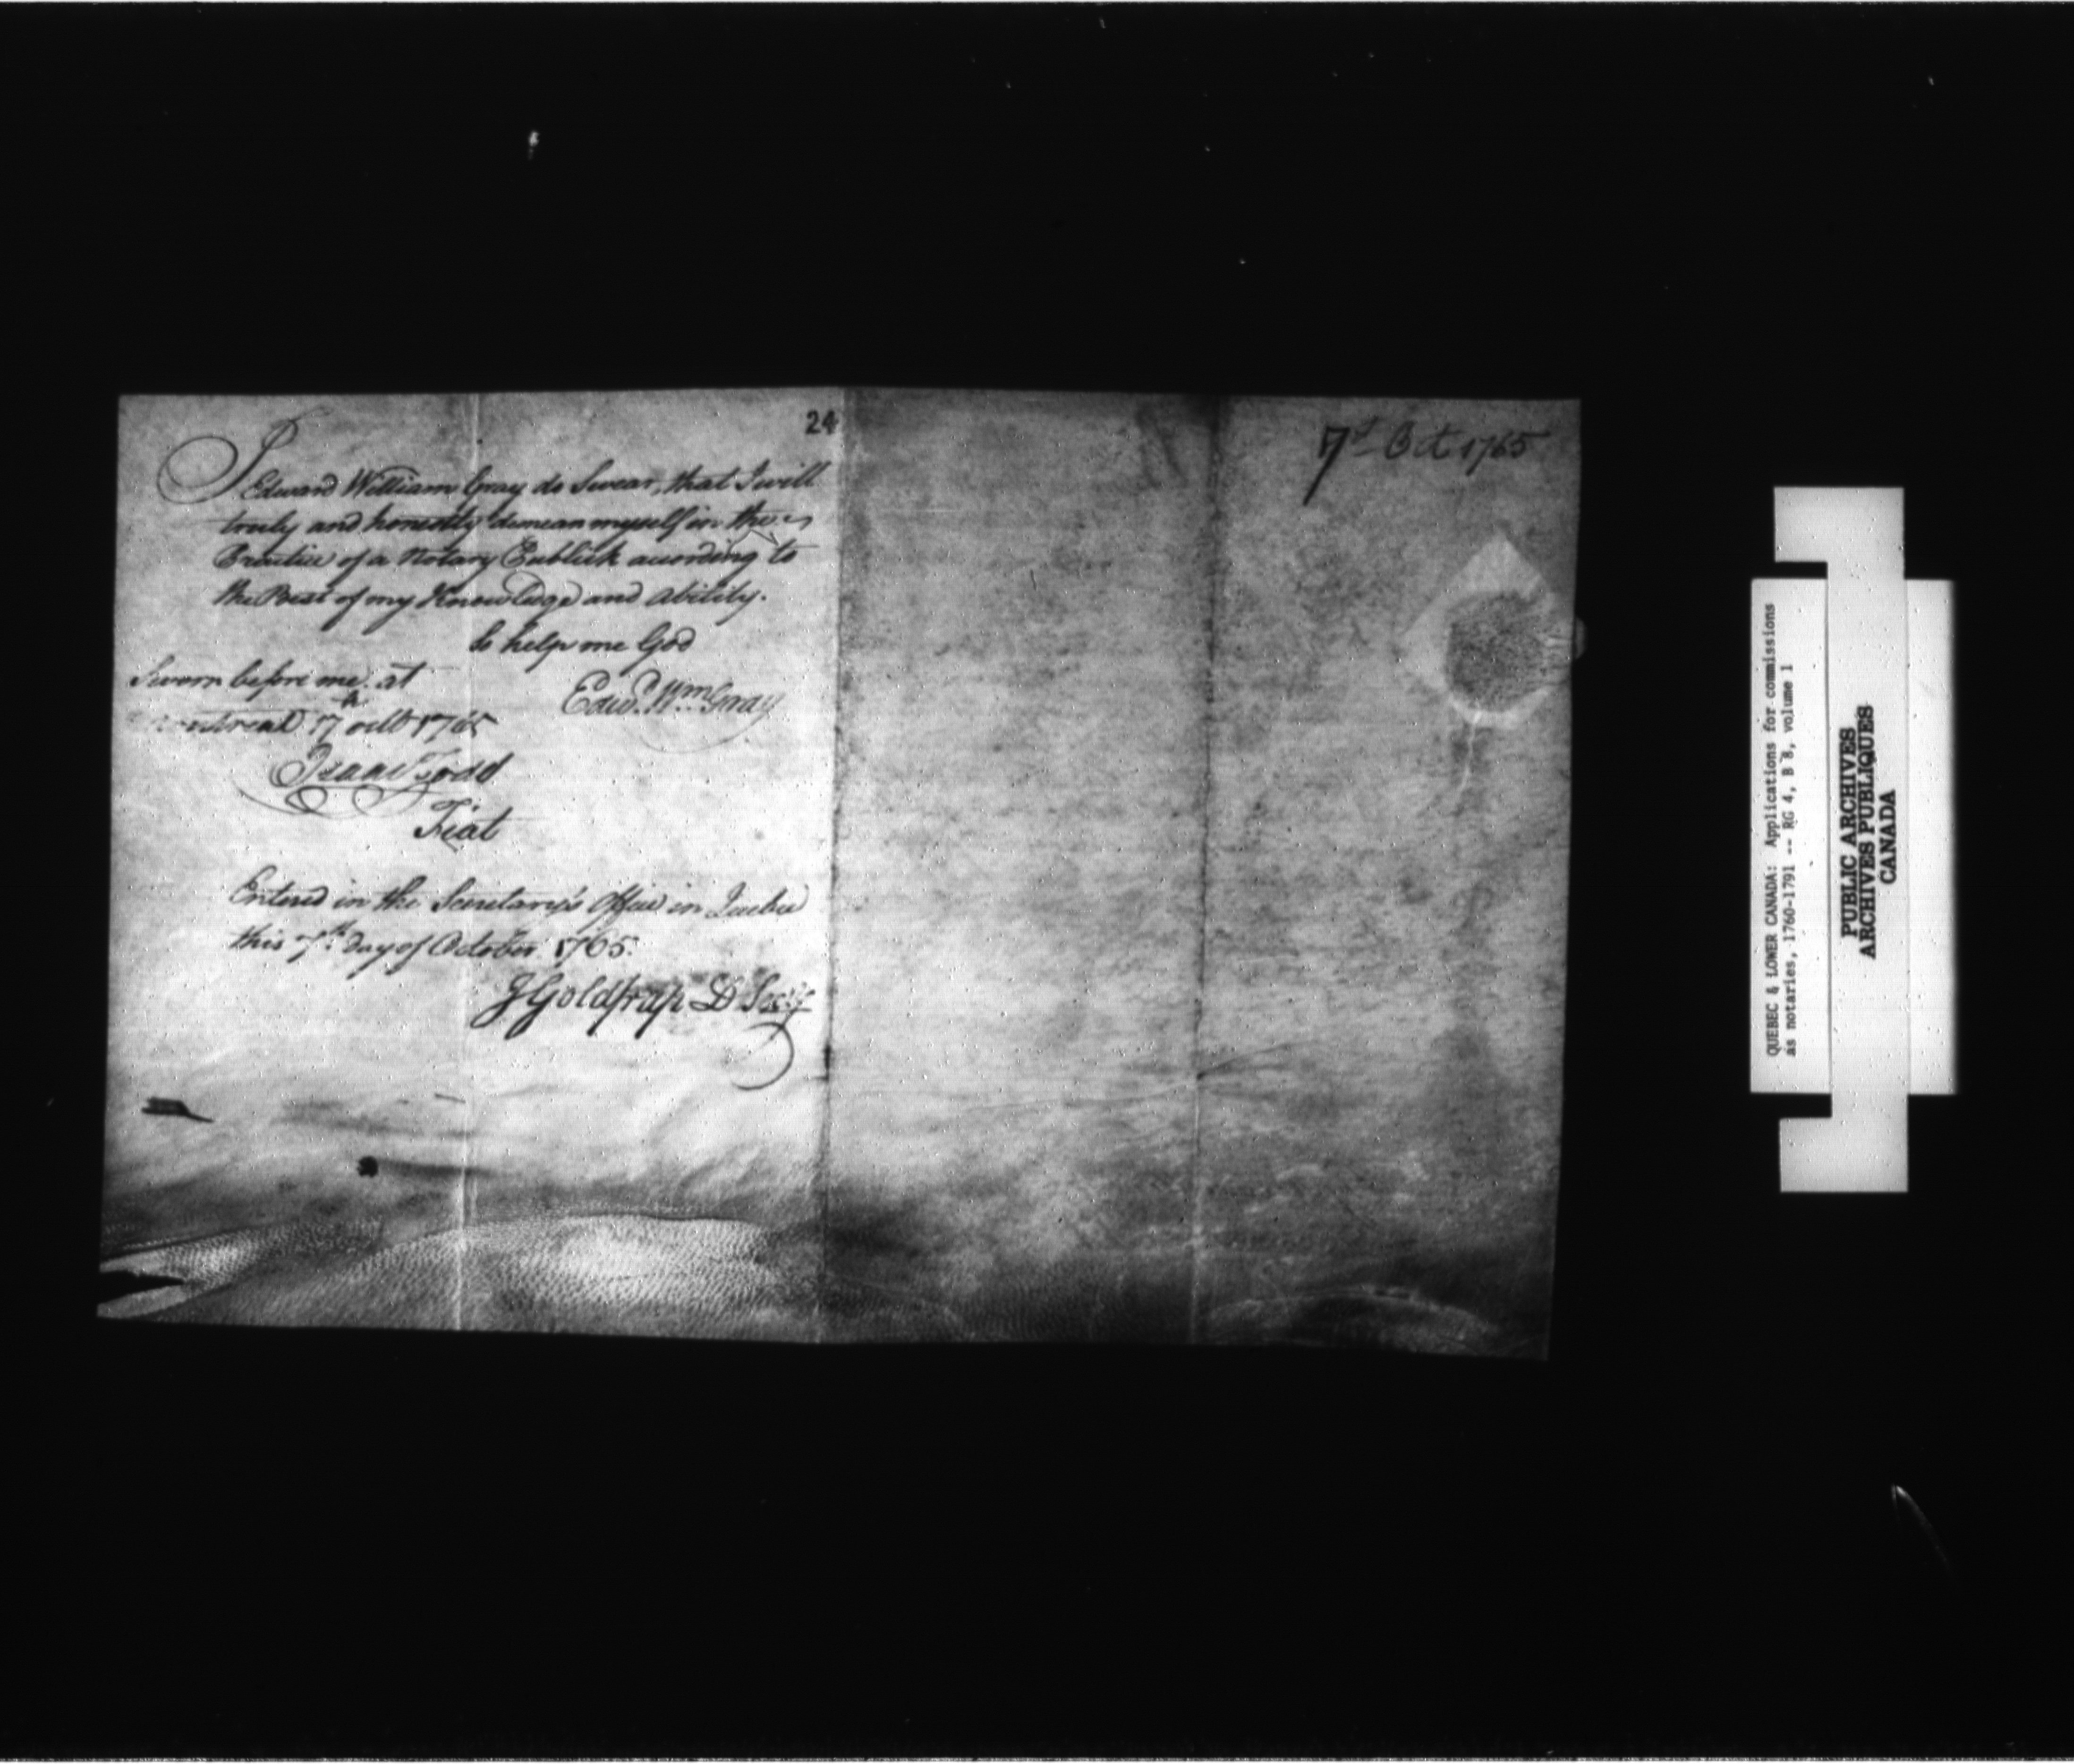 24
I Edward William Gray do Swear, that I will
truly and honestly demean myself in the
Practice of a Notary Publick according to
the Best of my Knowledge and ability.
So help me God
Sworn before me at
Montreal 7 octbr 1765
Edwd. Wm Gray
Isaac Todd
Fiat
Entered in the Secretary's Office in Quebec
this 7th. Day of October 1765.
J Goldfrap D Secry
7th Oct 1765
QUEBEC & LOWER CANADA: Applications for commissions
as notaries, 1760-1791 -- RG 4, B 8, volume 1
PUBLIC ARCHIVES
ARCHIVES PUBLIQUES
CANADA